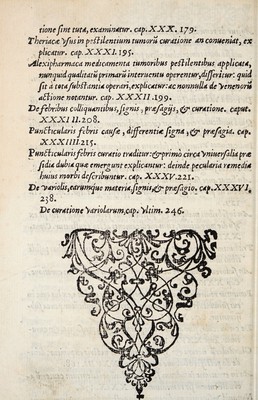 tione sint tuta, examinatur. cap. XXX. 179.
Theriacæ vsus in pestilentium tumorū curatione an conueniat, ex
plicatur. cap. XXXI. 195.
Alexipharmaca medicamenta tumoribus pestilentibus applicata,
nunquid qualitatū primarū interuentu operentur, disseritur: quid
sit à tota substantia operari, explicatur: ac nonnulla de venenorū
actione notantur. cap. XXXII. 199.
De febribus colliquantibus, signis, præsagijs, & curatione. caput.
XXXIII. 208.
Puncticularis febris causæ, differentiæ signa, & præsagia. cap.
XXXIIII. 215.
Puncticularis febris curatio traditur: & primò circa vniuersalia præ
sidia dubia quæ emergunt explicantur: deinde pecularia remedia
huius morbi describuntur. cap. XXXV. 221.
De variolis, earumque materia, signis, & præsagio. cap. XXXVI.
238.
De curatione variolarum, cap. Vltim. 246.